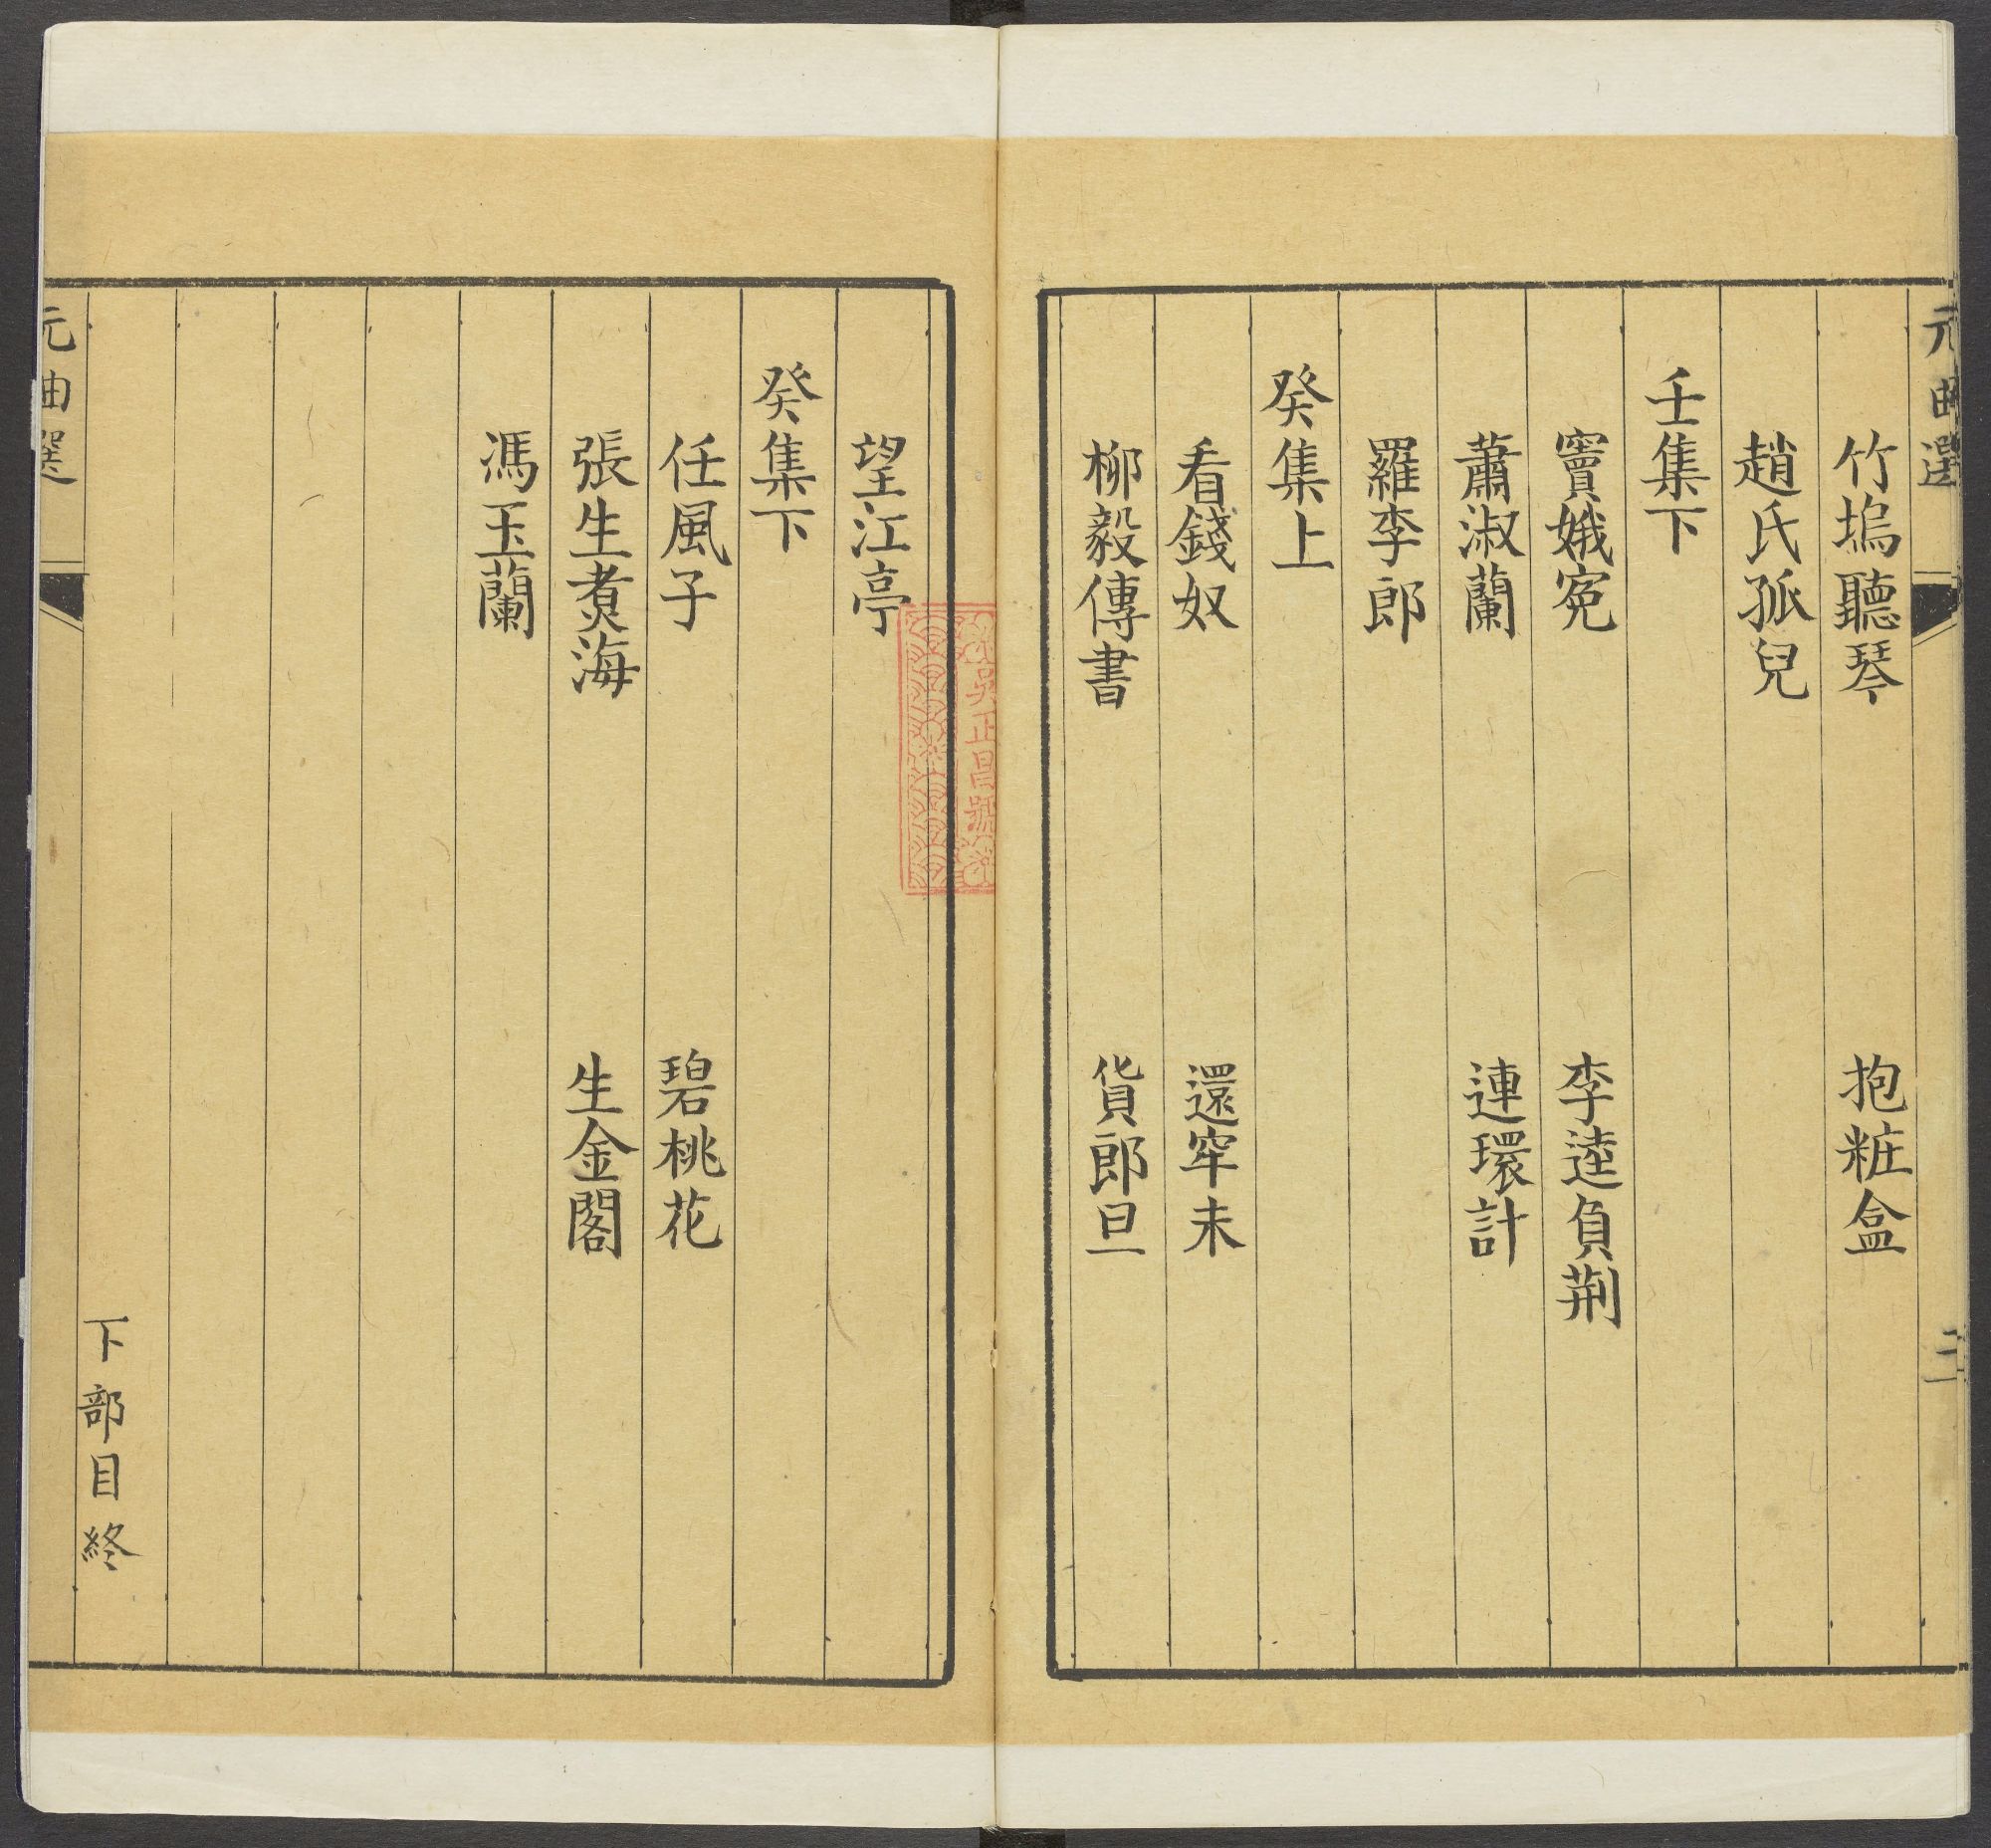 元曲選
二
竹塢聽琴 抱粧盒
趙氏孤兒
壬集下
竇娥寃 李逵負荆
蕭淑蘭 連環計
羅李郎
癸集上
看錢奴 還牢末
柳毅傳書 貨郎旦
吳正昌號
望江亭
癸集下
任風子 碧桃花
張生煑海 生金閣
馮玉蘭
下部目終
元曲選